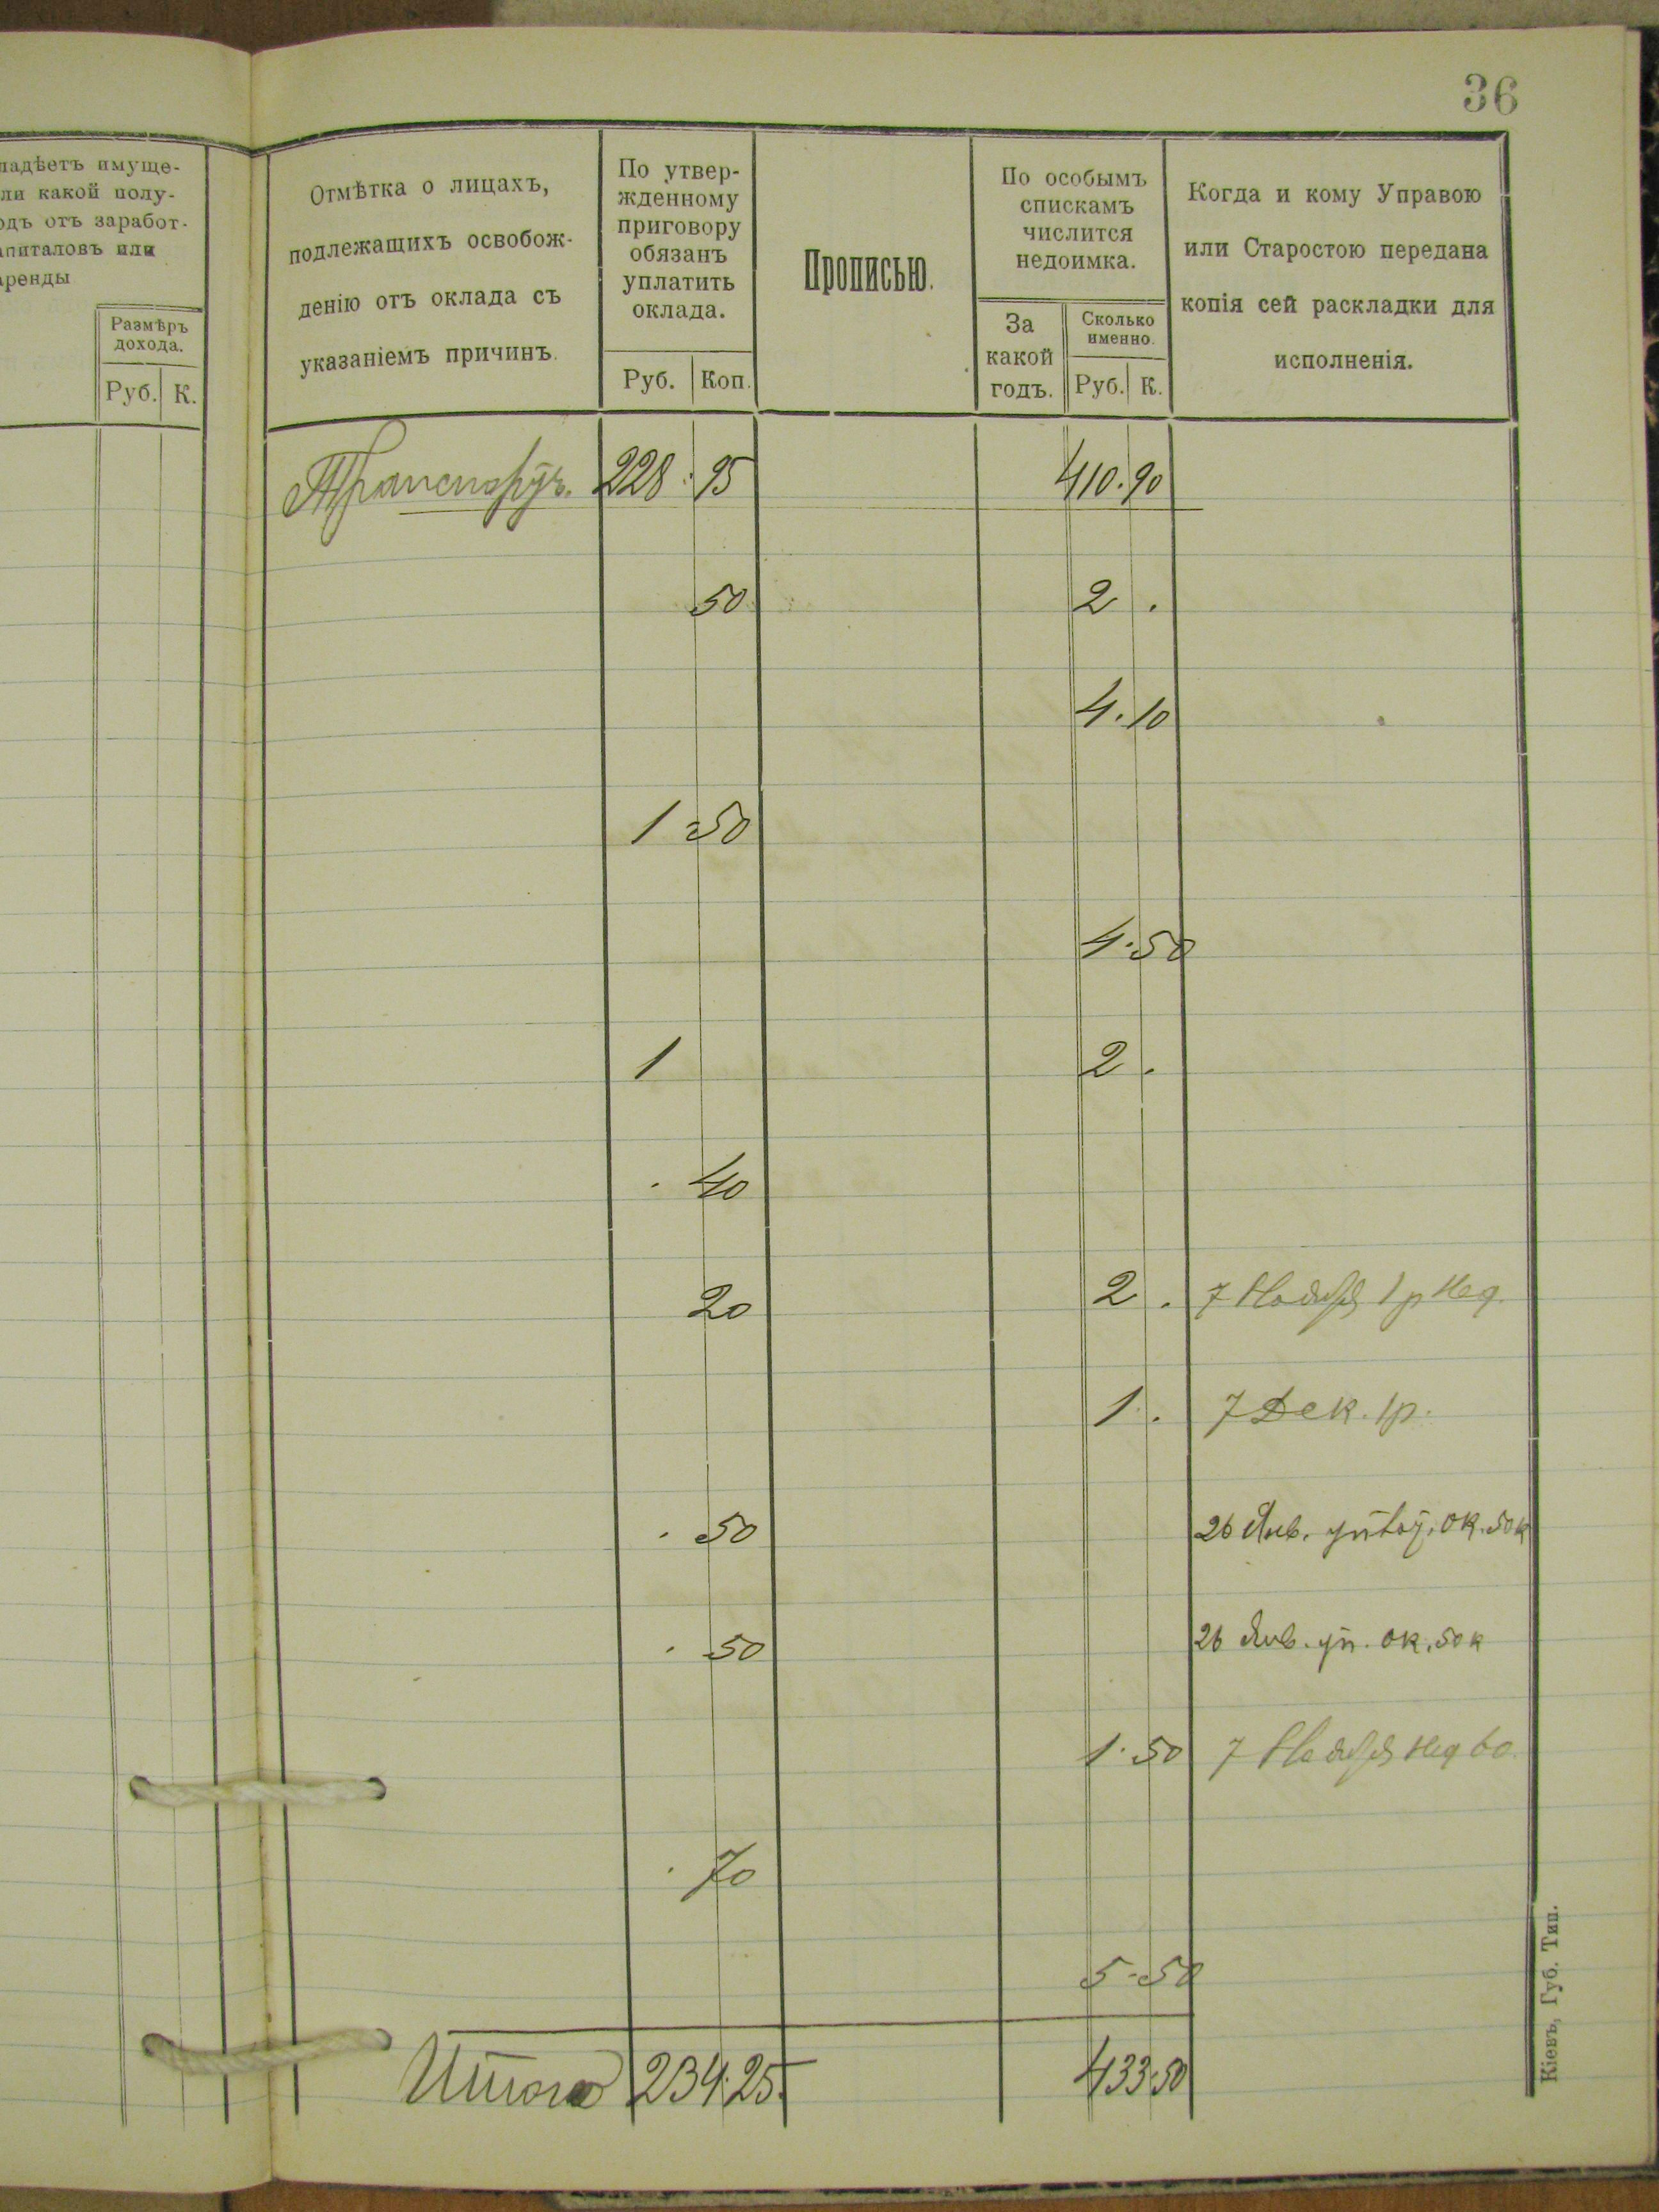 36
ладѣетъ имуще-
ли какой полу-
одъ отъ заработ-
апиталовъ или
аренды
Размѣръ
дохода.
Руб. К.
Отмѣтка о лицахъ,
подлежащихъ освобож-
денію отъ оклада съ
указаніемъ причинъ.
По утвер-
жденному
приговору
обязанъ
уплатить
оклада.
Руб. Коп.
Прописью.
По особымъ
спискамъ
числится
недоимка.
За
какой
годъ.
Сколько
именно.
Руб. К.
Когда и кому Управою
или Старостою передана
копія сей раскладки для
исполненія.
Транспортъ. 228. 95 410. 90
50 2 .
4. 10
1 50
4. 50
1 2 .
. 40
20 2 . 7 Ноября 1 р нед.
1 . 7 Дек. 1 р.
. 50 26 Янв. ок. 50 к
. 50 26 Янв. уп. ок. 50 к
1. 50 7 Ноября нед 60.
. 70
5 - 50
Итого 234. 25. 433. 50
Кіевъ, Губ. Тип.